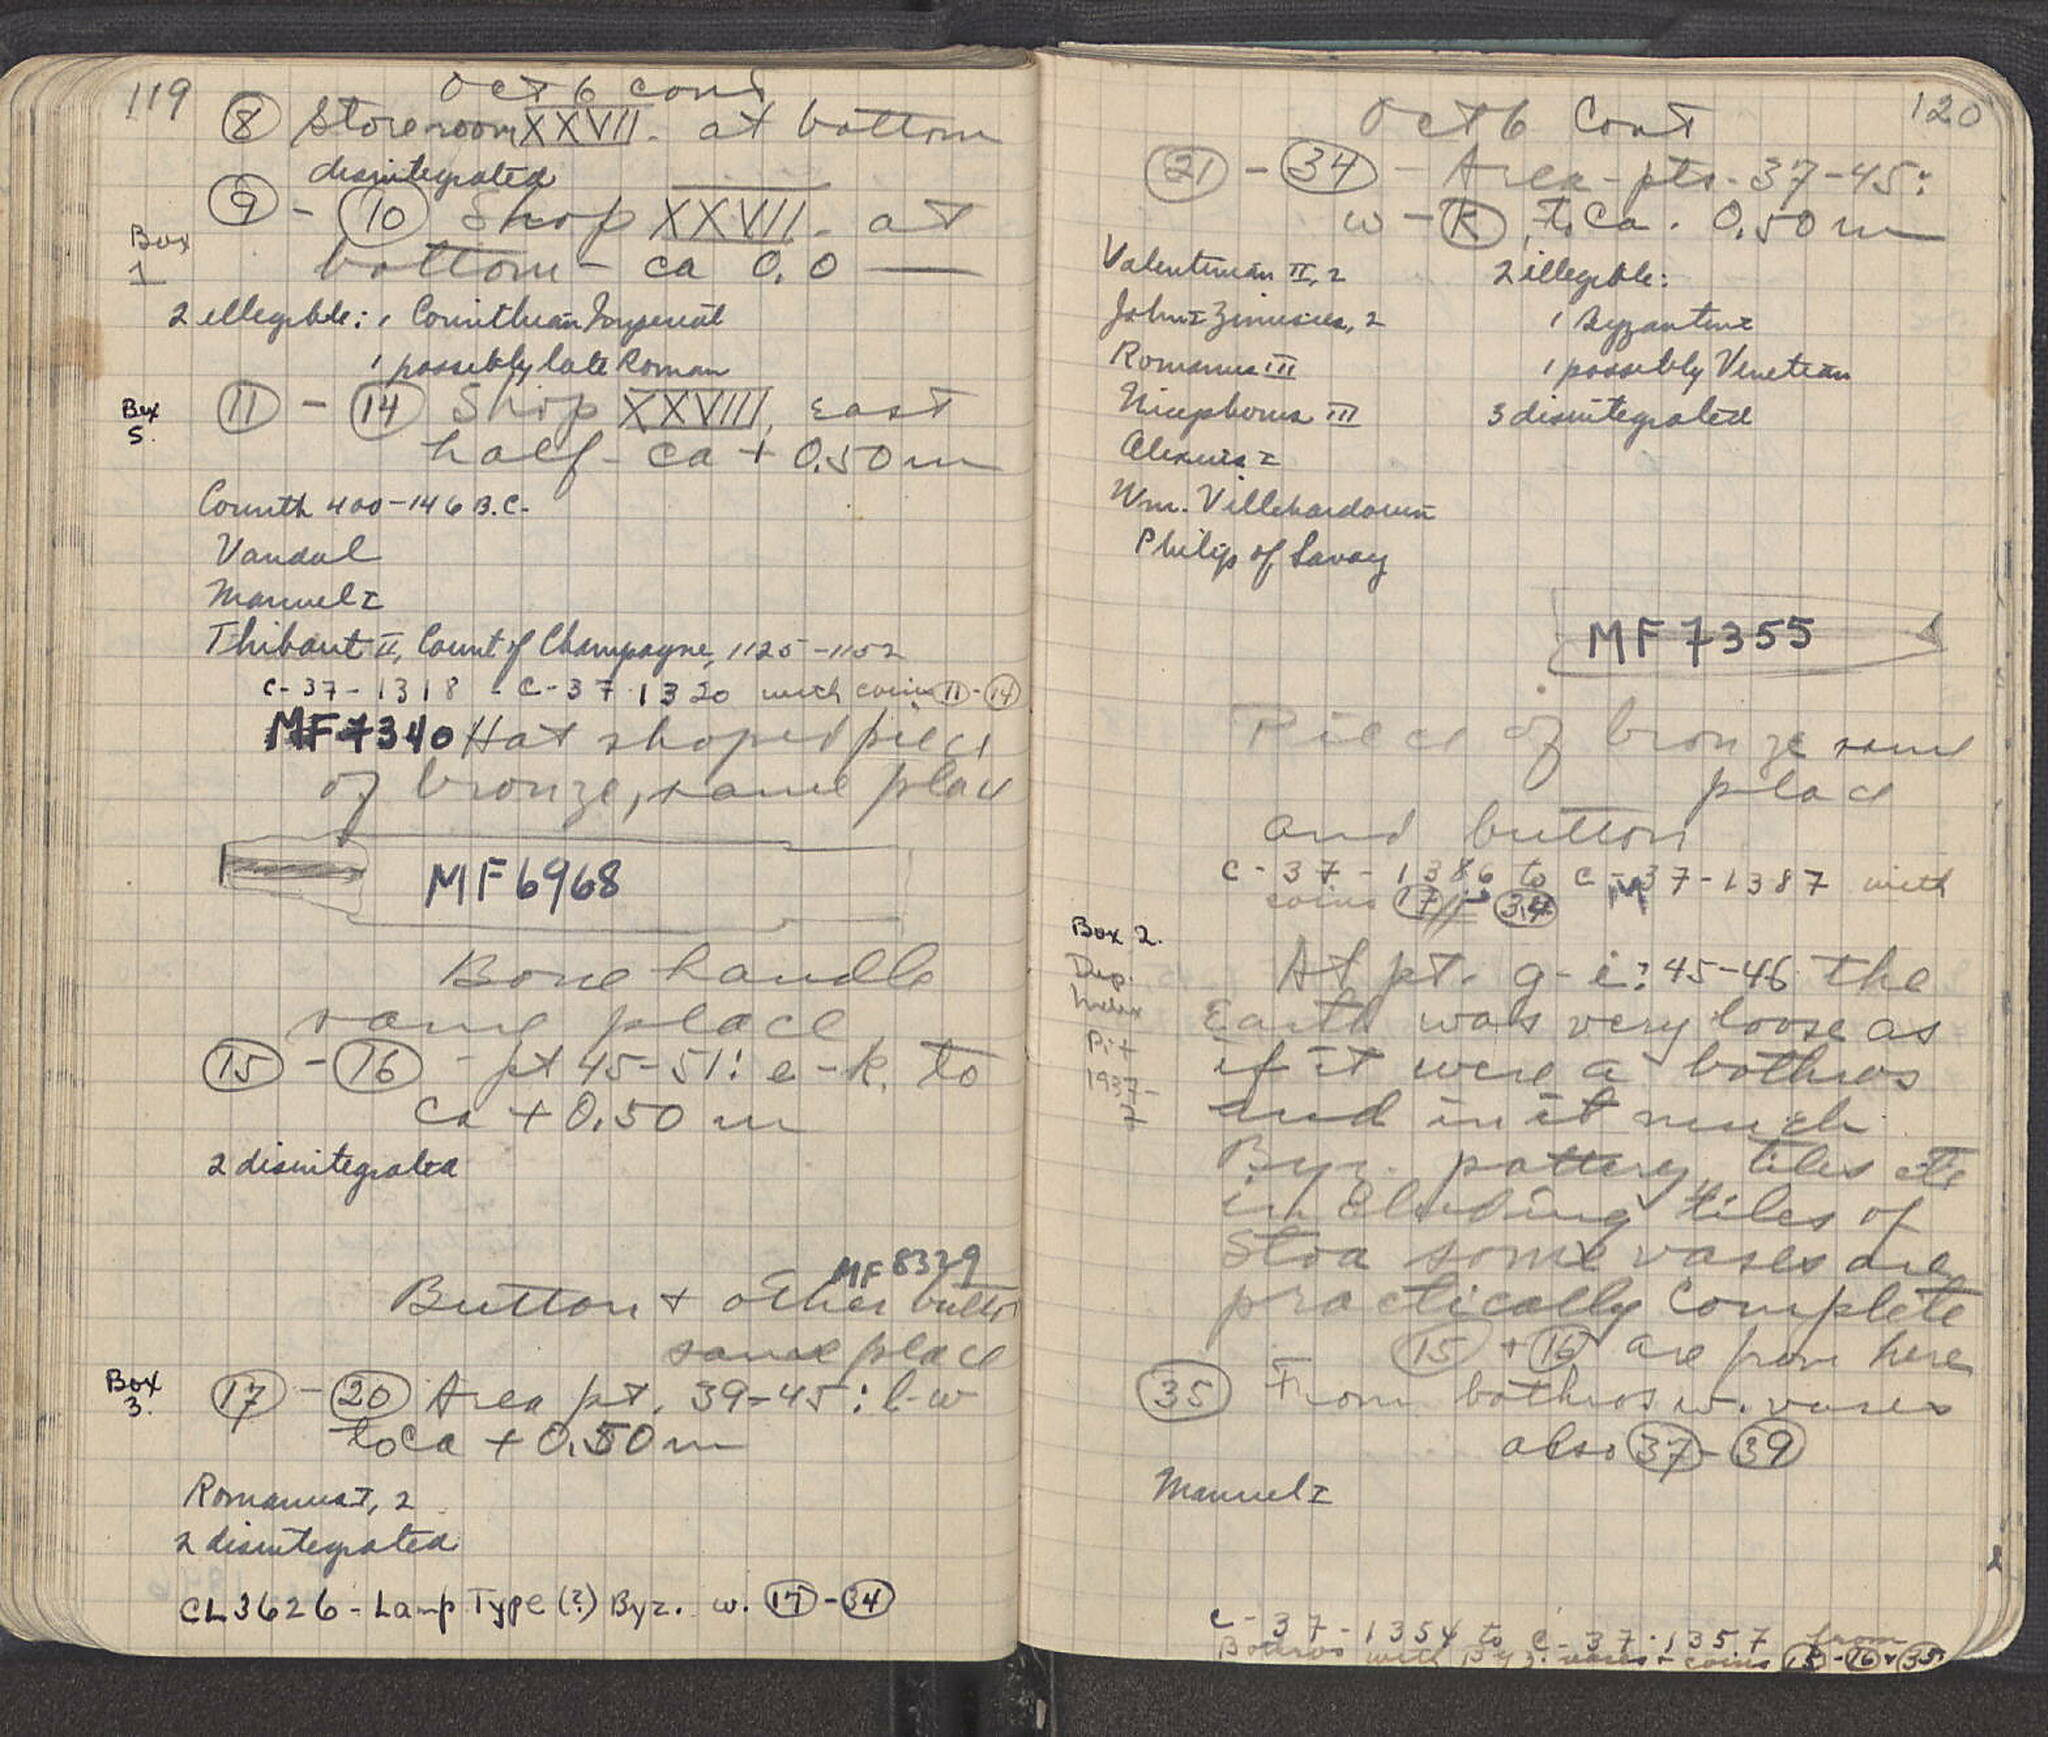 119
Oct 6 cont
⑧ Storeroom XXVII - at bottom
disintegrated
⑨ - ⑩ Shop XXVII - at
Box 1
bottom - ca 0.0
2 illegible: 1 Corinthian Imperial
1 possibly late Roman
Box 5.
⑪ - ⑭ Shop XXVIII, East
half - ca + 0.50 m
Corinth 400-146 B.C.
Vandal
Manuel I
Thibaut II, Count of Champagne, 1125-1152
C-37-1318 - C-37-1320 with coins ⑪-⑭
MF7340 Hat shaped piece
of bronze, same place
MF6968
Bone handle
same place
⑮ - ⑯ - pt 45-51: e-k. to
ca + 0.50 m
2 disintegrated
MF 8329
Button + other button
same place
Box 3.
⑰ - ⑳ Area pt. 39-45: l-w
to ca + 0.50 m
Romanus I, 2
2 disintegrated
CL3626 - Lamp Type (?) Byz. w. ⑰-㉞
120
Oct 6 Cont
㉑ - ㉞ - Area - pts. 37-45:
w - K, to Ca. 0.50 m
Valentinian II, 2
John I Zimisces, 2
Romanus III
Nicephorus III
Alexius I
Wm. Villehardouin
Philip of Savoy
2 illegible:
1 Byzantine
1 possibly Venetian
3 disintegrated
MF 7355
Piece of bronze same
place
and button
C-37-1386 to C-37-1387 with
coins ⑰ ㉞
Box 2.
Dep. Index Pit 1937-7
At pt. g-i: 45-46 the
Earth was very loose as
if it were a bothros
and in it much
Byz. pottery, tiles etc
including tiles of
Stoa some vases are
practically complete
⑮ + ⑯ are from here
㉟ From bothros w. vases
also ㊲-㊴
Manuel I
C-37-1354 to C-37-1357 from
Bothros with Byz. vases + coins ⑮-⑯ + ㉟